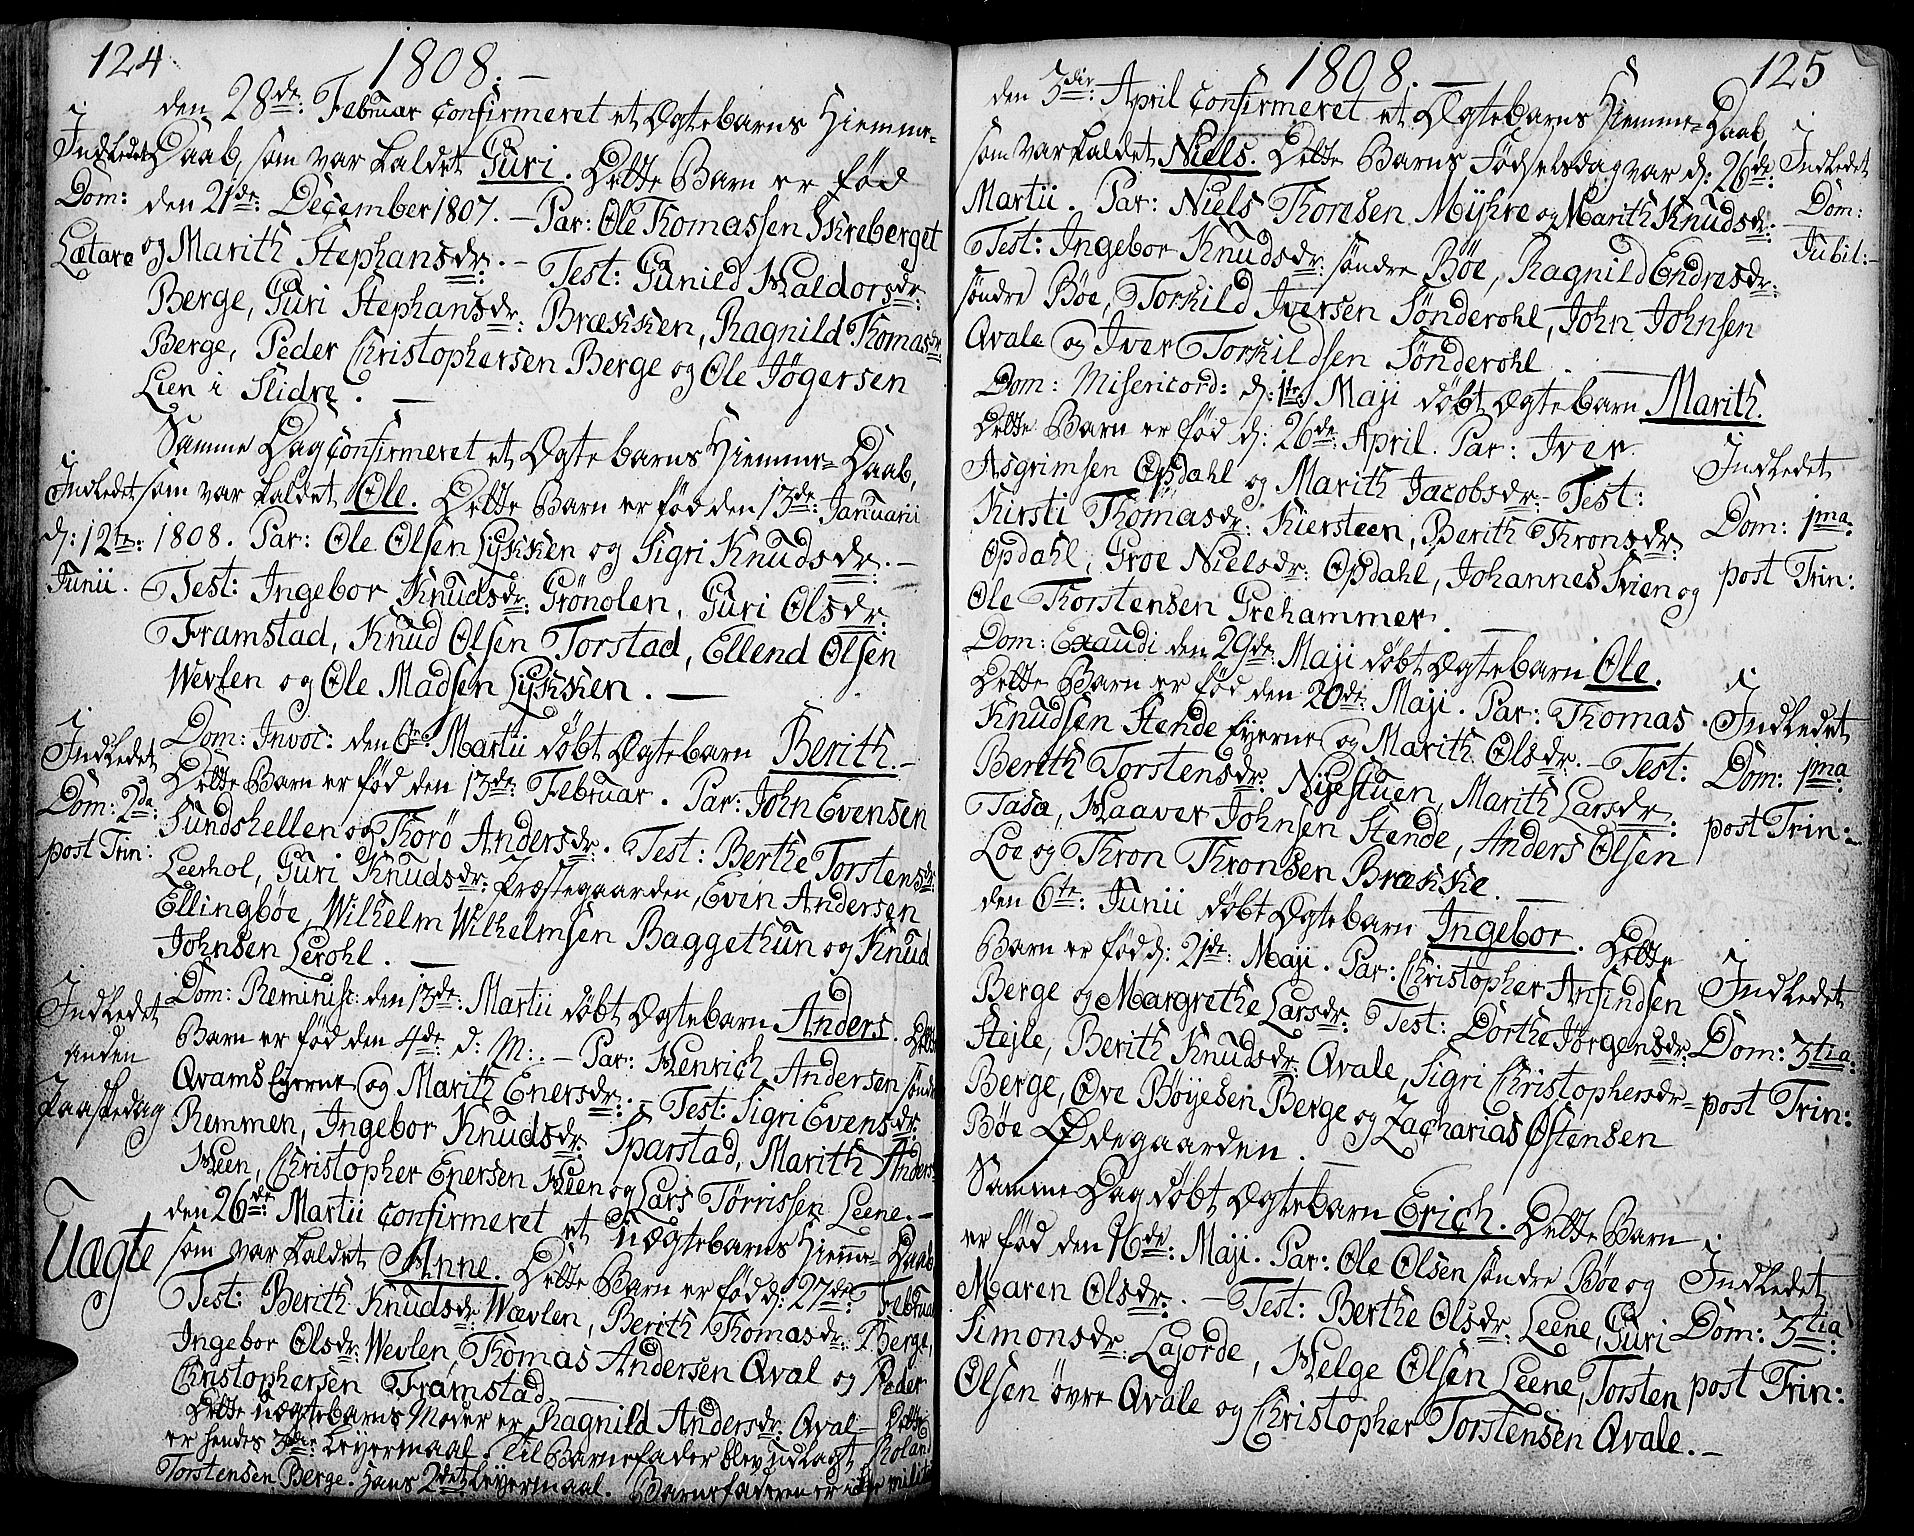 124
1808. —
den 28de: Februar confirmeret et Ægtebarns Hiemme-
Daab, som var kaldet Guri. Dette Barn er fød
den 21de: December 1807. — Par: Ole Thomassen Skreberget
og Marith Stephansdr: — Test: Gunild Haldorsdr:
Berge, Guri Stephansdr: Brækken, Ragnild Thomasdr
Berge, Peder Christophersen Berge og Ole Jøgersen
Lien i Slidre. —
Indledet
Dom:
Lætare
Samme Dag confirmeret et Ægtebarns Hiemme-Daab,
som var kaldet Ole. Dette Barn er fød den 13de: Januarii
1808. Par: Ole Olsen Lykken og Sigri Knudsdr: —
Test: Ingebor Knudsdr: Grönolen, Guri Olsdr:
Framstad, Knud Olsen Torstad, Ellend Olsen
Wevlen og Ole Madsen Lykken. —
Indledet
d: 12te:
Junii.
Dom: Invoc: den 6te: Martii döbt Ægtebarn Berith. —
Dette Barn er fød den 13de: Februar. Par: John Evensen
Sundshellen og Thorö Andersdr. Test: Berthe Torstensdr:
Leerhol, Guri Knudsdr: Præstegaarden, Even Andersen
Ellingböe, Wilhelm Wilhelmsen Baggethun og Knud
Johnsen Lerohl. —
Indledet
Dom: 2da:
post Trin:
Dom: Reminisc: den 13de: Martii döbt Ægtebarn Anders. Dette
Barn er fød den 4de: d: M:. — Par: Henrich Andersen söndr
Qvams Eyerne og Marith Enersdr: — Test: Sigri Evensdr:
Remmen, Ingebor Knudsdr: Sparstad, Marith Anders
Heen, Christopher Enersen Heen og Lars Törrissen Leene. —
Indledet
anden
Paaskedag
den 26de: Martii confirmeret et Uægtebarns Hieme-Daab
som var kaldet Anne. Dette Barn er fød d: 27de: Februar
Test: Berith Knudsdr: Wævlen, Berith Thomasdr: Berge,
Ingebor Olsdr: Wevlen, Thomas Andersen Qval og Peder
Christophersen Framstad.
Dette Uægtebarns Moder er Ragnild Andersdr: Qval Dette
er hendes 3die Leyermaal. Til Barnefader blev udlagt
Torstensen Berge. Hans 2det Leyermaal. Barnefaderen er ikke milit
Uægte
1808. —
125
den 3die: April confirmeret et Ægtebarns Hiemme-Daab,
som var kaldet Niels. Dette Barns Födselsdag var d: 26de:
Martii. Par: Niels Thoresen Myhre og Marith Knudsdr:
Test: Ingebor Knudsdr: söndre Böe, Ragnild Endresdr:
söndre Böe, Torkild Iversen Sönderohl, John Johnsen
Qvale og Iver Torkildsen Sönderohl. —
Indledet
Dom:
Jubil: —
Dom: Misericord: d: 1te: Maji döbt Ægtebarn Marith.
Dette Barn er fød d: 26de: April. Par: Iver
Asgrimsen Opdahl og Marith Jacobsdr: Test:
Kirsti Thomasdr: Kiersteen, Berith Thronsdr:
Opdahl, Groe Nielsdr: Opdahl, Johannes Svien og
Ole Thorstensen Grehammer. —
Indledet
Dom: 1ma:
post Trin:
Dom: Exaudi den 29de: Maji döbt Ægtebarn Ole.
Dette Barn er fød den 20de: Maji. Par: Thomas
Knudsen Stende Eyerne og Marith Olsdr: — Test:
Berith Torstensdr: Nyestuen, Marith Larsdr:
Tasa, Haaver Johnsen Stende, Anders Olsen
Loe og Thron Thronsen Brække.
Indledet
Dom: 1ma
post Trin:
den 6te: Junii döbt Ægtebarn Ingebor. Dette
Barn er fød d: 21de: Maji. Par: Christopher Arfindsen
Berge og Margrethe Larsdr: Test: Dorthe Jörgensdr:
Stejle, Berith Knudsdr: Qvale, Sigri Christophersdr=
Berge, Ove Böyesen Berge og Zacharias Østensen
Böe Ødegaarden. —
Indledet
Dom: 3tia:
post Trin:
Samme Dag döbt Ægtebarn Erich. Dette Barn
er fød den 16de: Maji. Par: Ole Olsen söndre Böe og
Maren Olsdr: — Test: Berthe Olsdr: Leene, Guri
Simonsdr: Lajorde, Helge Olsen Leene, Torsten
Olsen övre Qvale og Christopher Torstensen Qvale. —
Indledet
Dom: 3tia:
post Trin: